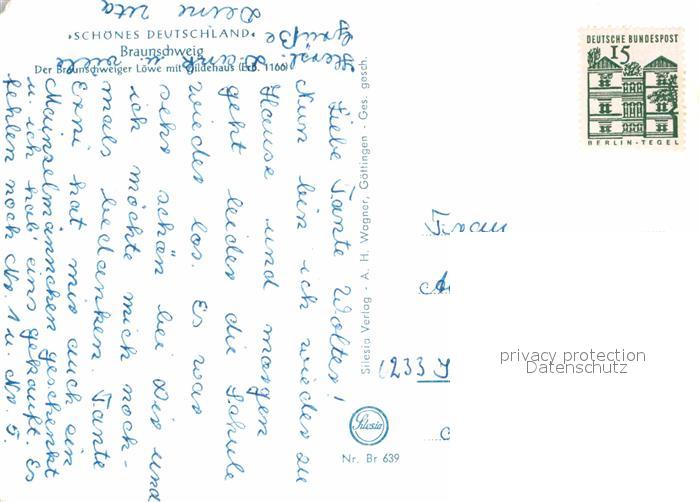 »SCHÖNES DEUTSCHLAND«
Braunschweig
Der Braunschweiger Löwe mit Gildehaus (Erb. 1166)
Liebe Tante Wolter!
Nun bin ich wieder zu
Hause und morgen
geht leider die Schule
wieder los. Es war
sehr schön bei Dir und
ich möchte mich noch-
mals bedanken. Tante
Erni hat mir auch ein
Mainzelmännchen geschenkt
u. ich hab' eins gekauft. Es
fehlen noch Nr. 1 u. Nr. 5.
Herzl.
Grüße
Dank u. viele
Deine Uta
Silesia Verlag - A. H. Wagner, Göttingen - Ges. gesch.
Silesia
Nr. Br 639
DEUTSCHE BUNDESPOST
15
BERLIN-TEGEL
Frau
privacy protection
Datenschutz